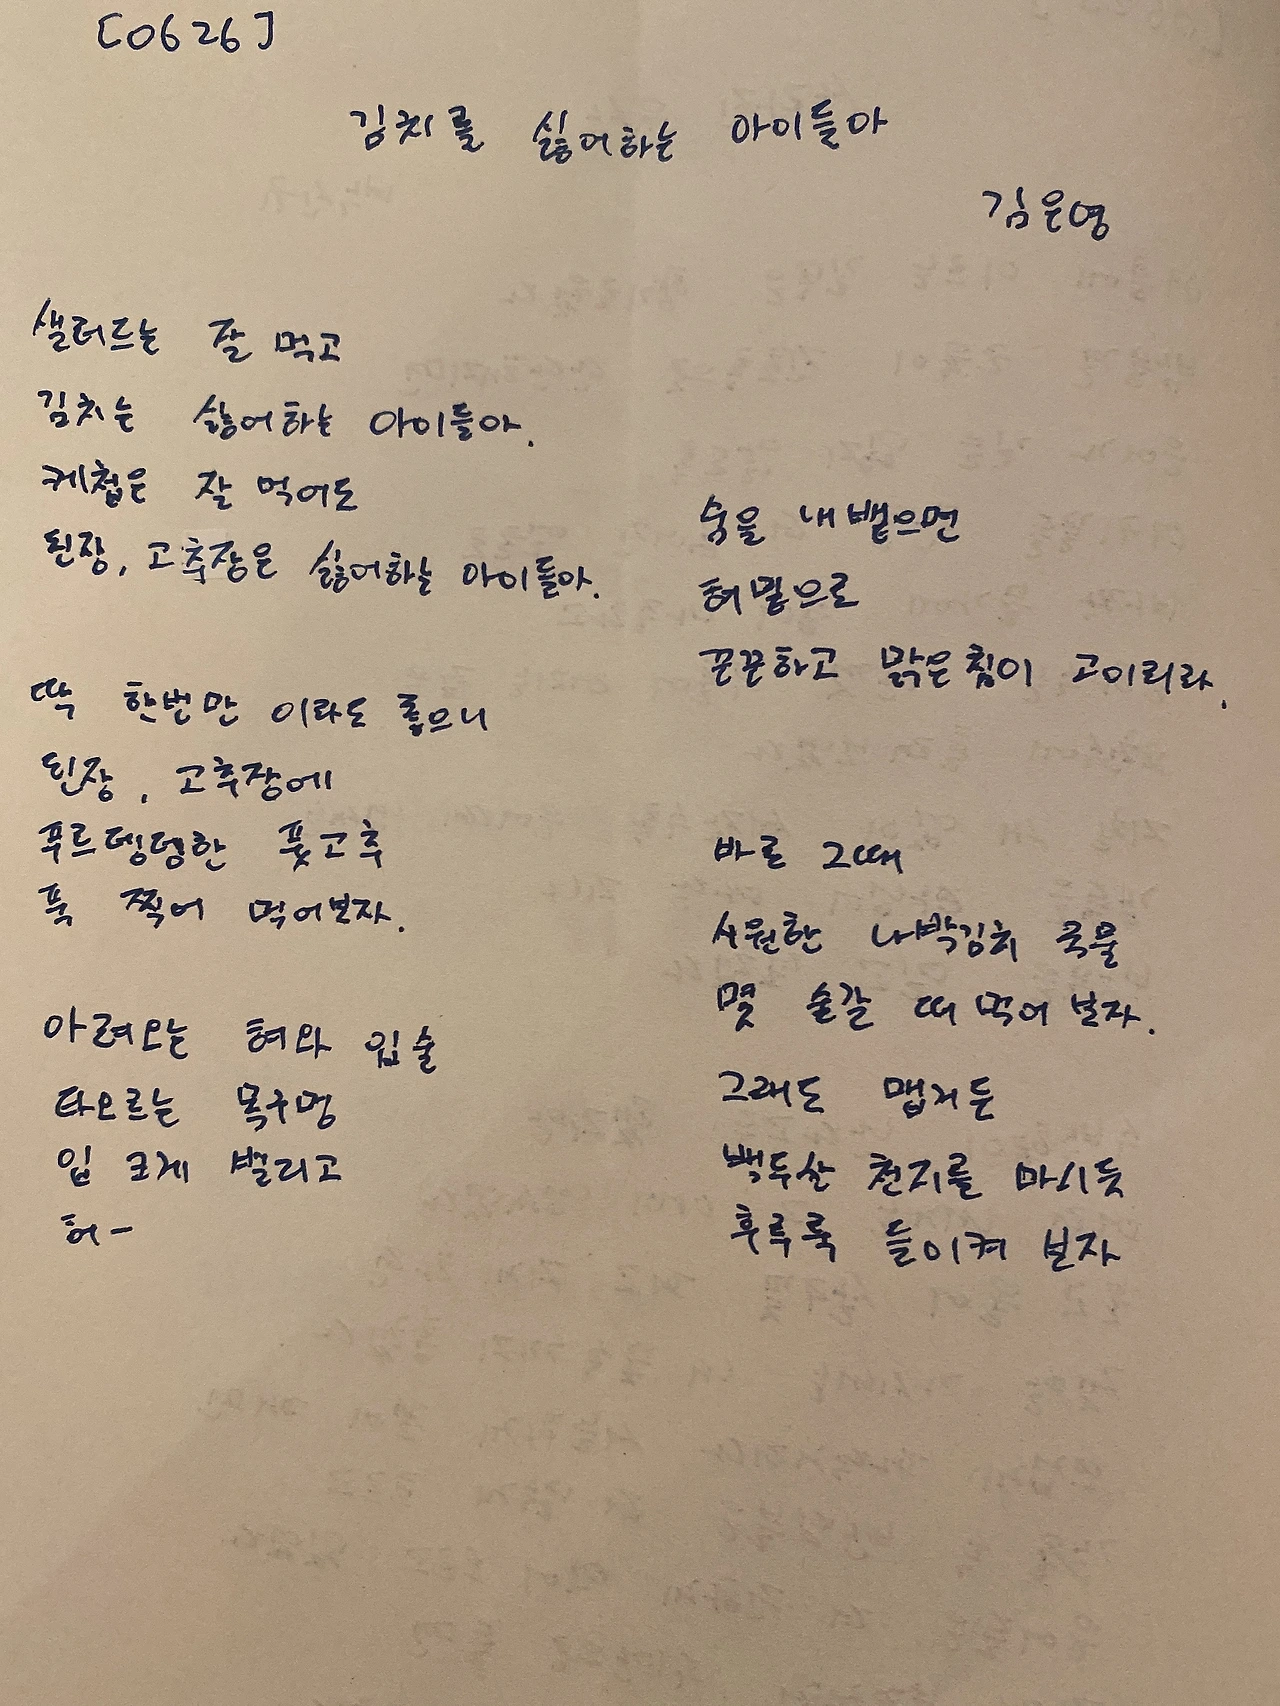 [0626]
김치를 싫어하는 아이들아
김은영
샐러드는 잘 먹고
김치는 싫어하는 아이들아.
케첩은 잘 먹어도
된장, 고추장은 싫어하는 아이들아.
딱 한번만 이라도 좋으니
된장, 고추장에
푸르뎅뎅한 풋고추
푹 찍어 먹어보자.
아려오는 혀와 입술
타오르는 목구멍
입 크게 벌리고
허-
숨을 내뱉으면
혀밑으로
끈끈하고 맑은침이 고이리라.
바로 그때
시원한 나박김치 국물
몇 숟갈 떠 먹어 보자.
그래도 맵거든
백두산 천지를 마시듯
후루룩 들이켜 보자